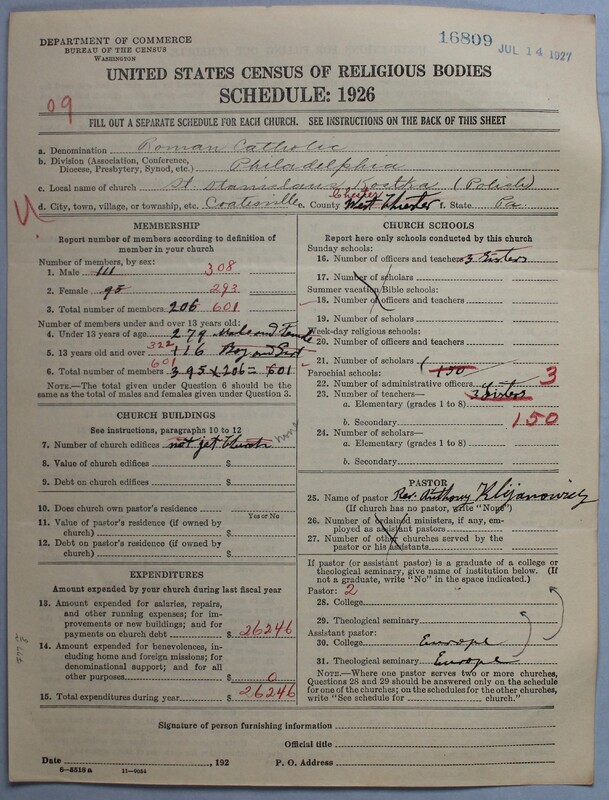 DEPARTMENT OF COMMERCE
BUREAU OF THE CENSUS
WASHINGTON
16809
JUL 14 1927
UNITED STATES CENSUS OF RELIGIOUS BODIES
SCHEDULE: 1926
09
FILL OUT A SEPARATE SCHEDULE FOR EACH CHURCH. SEE INSTRUCTIONS ON THE BACK OF THIS SHEET
a. Denomination Roman Catholic
b. Division (Association, Conference, Diocese, Presbytery, Synod, etc.) Philadelphia
c. Local name of church St. Stanislaus Kostka (Polish)
d. City, town, village, or township, etc. Coatesville e. County West Chester Chester f. State Pa.
MEMBERSHIP
Report number of members according to definition of
member in your church
Number of members, by sex:
1. Male 111 308
2. Female 95 293
3. Total number of members 206 601
Number of members under and over 13 years old:
4. Under 13 years of age 279 Male and Female
5. 13 years old and over 322 116 Boy and Girl
601
6. Total number of members 395 + 206 = 601
NOTE.—The total given under Question 6 should be the
same as the total of males and females given under Question 3.
CHURCH BUILDINGS
See instructions, paragraphs 10 to 12
7. Number of church edifices not yet Church none
8. Value of church edifices $
9. Debt on church edifices $
10. Does church own pastor's residence
Yes or No
11. Value of pastor's residence (if owned by
church) $
12. Debt on pastor's residence (if owned by
church) $
EXPENDITURES
Amount expended by your church during last fiscal year
13. Amount expended for salaries, repairs,
and other running expense; for improvements or new buildings; and for
payments on church debt $ 26246
14. Amount expended for benevolences,
including home and foreign missions; for
denominational support; and for all
other purposes $ 0
15. Total expenditures during year $ 26246
CHURCH SCHOOLS
Report here only schools conducted by this church
Sunday schools:
16. Number of officers and teachers 3 Sisters
17. Number of scholars
Summer vacation Bible schools:
18. Number of officers and teachers
19. Number of scholars
Week-day religious schools:
20. Number of officers and teachers
21. Number of scholars 150
Parochial schools:
22. Number of administrative officers 3
23. Number of teachers— 3 Sisters
a. Elementary (grades 1 to 8)
b. Secondary 150
24. Number of scholars—
a. Elementary (grades 1 to 8)
b. Secondary
PASTOR
25. Name of pastor Rev. Anthony
(If church has no pastor, write "None")
26. Number of ordained ministers, if any, employed as assistant pastors
27. Number of other churches served by the
pastor or his assistants
If pastor (or assistant pastor) is a graduate of a college or
theological seminary, give name of institution below. (If
not a graduate, write "No" in the space indicated.)
Pastor: 2
28. College
29. Theological seminary
Assistant pastor:
30. College Europe
31. Theological seminary Europe
NOTE.—Where one pastor serves two or more churches,
Questions 28 and 29 should be answered only on the schedule
for one of the churches; on the schedules for the other churches,
write "See schedule for church."
Signature of person furnishing information
Official title
Date , 192 P. O. Address
8—5518a 11—9054